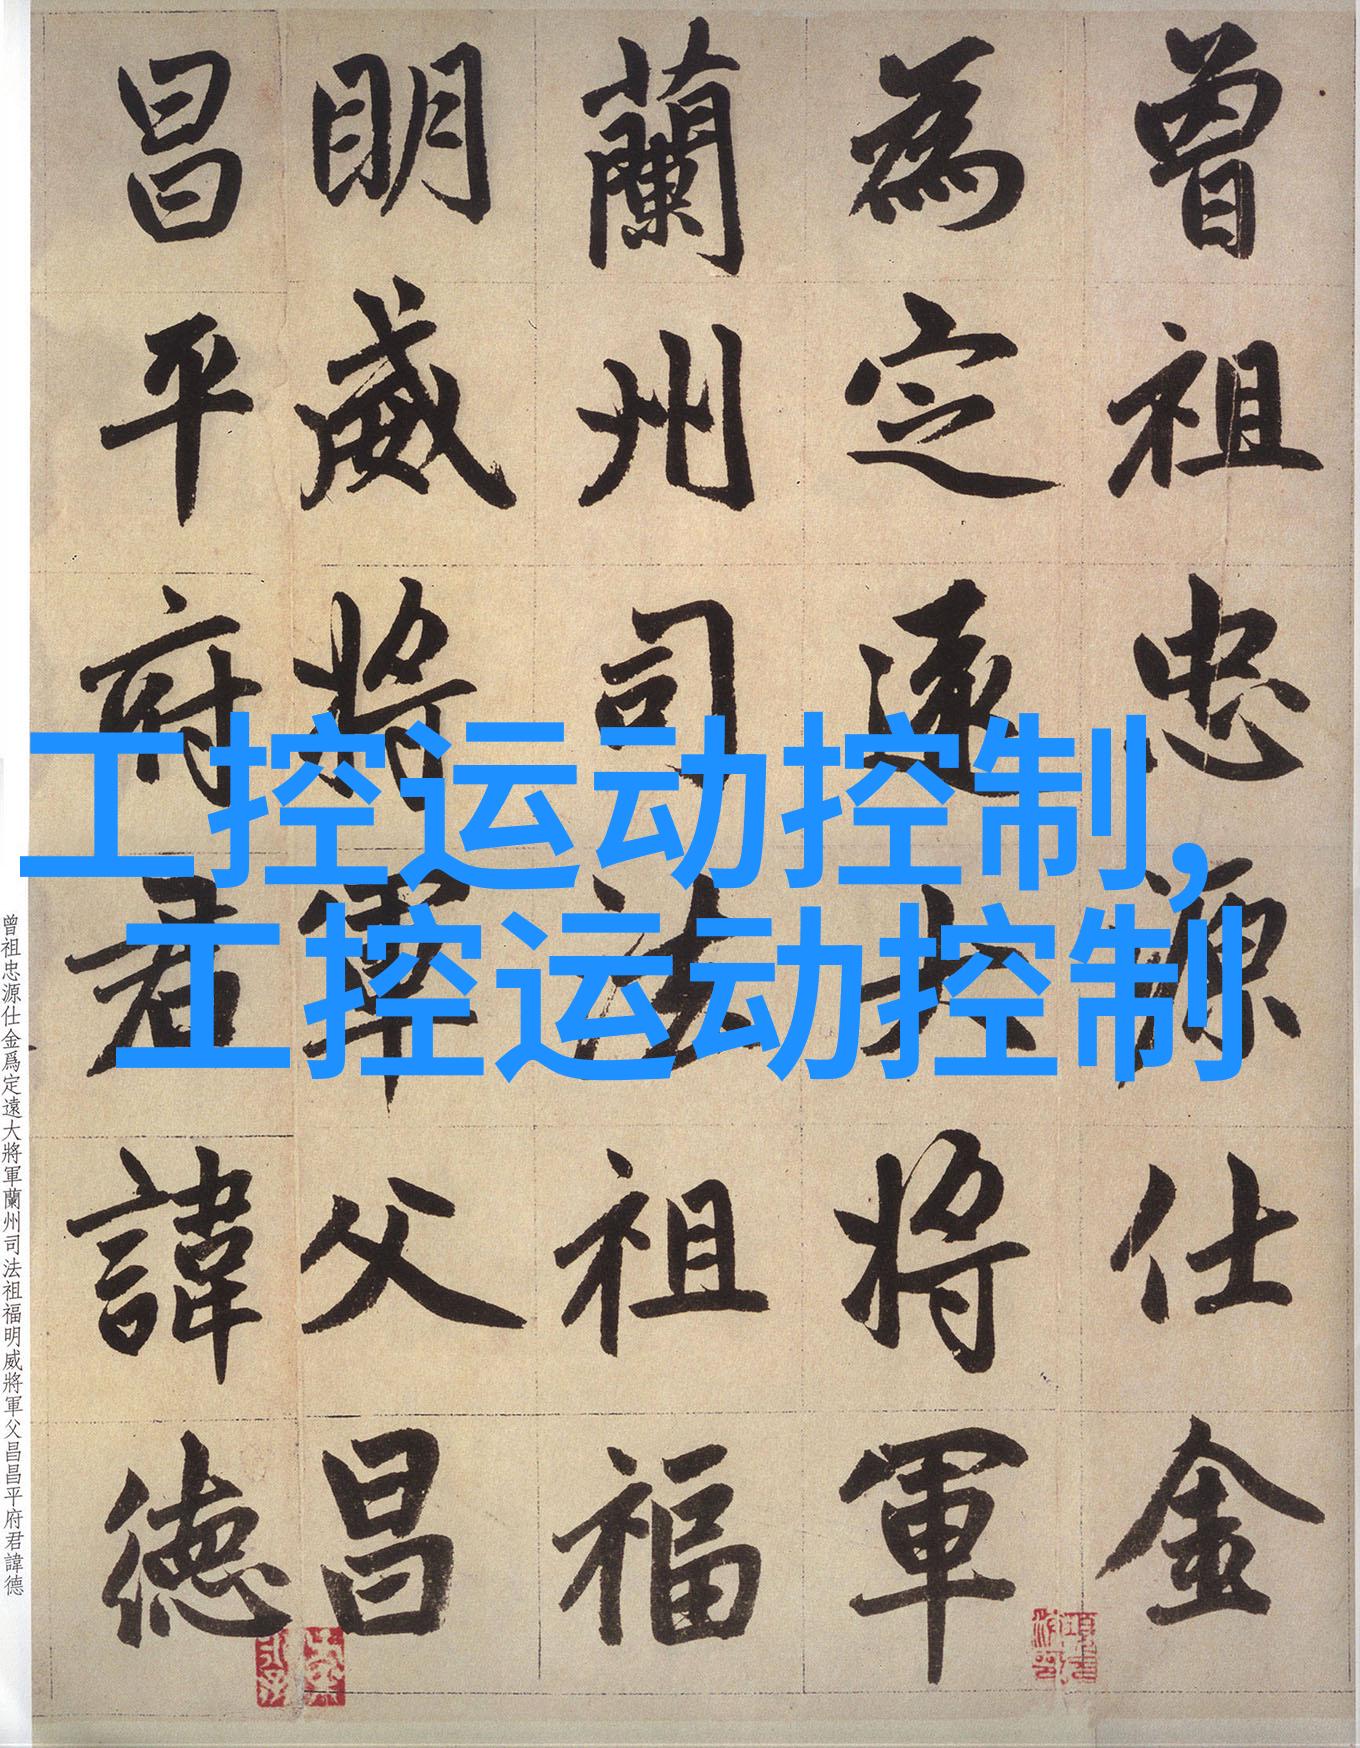 曾祖忠源仕金
為定遠大将軍
蘭州司法祖福
明威将軍父昌
昌平府君諱德
工控运动控制,
工控运动控制
曾祖忠源仕金爲定遠大將軍蘭州司法祖福明威將軍父昌昌平府君諱德